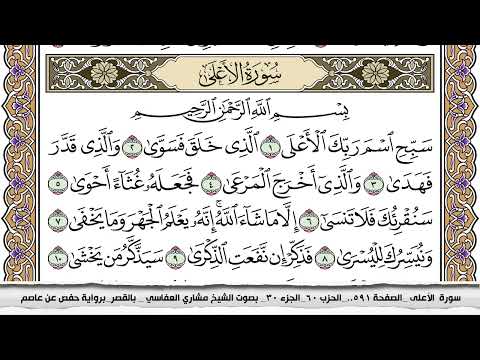 سُورَةُ الأَعْلَى
بِسْمِ اللَّهِ الرَّحْمَٰنِ الرَّحِيمِ
سَبِّحِ اسْمَ رَبِّكَ الْأَعْلَى ١ الَّذِي خَلَقَ فَسَوَّىٰ ٢ وَالَّذِي قَدَّرَ
فَهَدَىٰ ٣ وَالَّذِي أَخْرَجَ الْمَرْعَىٰ ٤ فَجَعَلَهُ غُثَاءً أَحْوَىٰ ٥
سَنُقْرِئُكَ فَلَا تَنسَىٰ ٦ إِلَّا مَا شَاءَ اللَّهُ ۚ إِنَّهُ يَعْلَمُ الْجَهْرَ وَمَا يَخْفَىٰ ٧
وَنُيَسِّرُكَ لِلْيُسْرَىٰ ٨ فَذَكِّرْ إِن نَّفَعَتِ الذِّكْرَىٰ ٩ سَيَذَّكَّرُ مَن يَخْشَىٰ ١٠
سورة الأعلى _الصفحة ٥٩١.. _الحزب ٦٠_الجزء ٣٠_ بصوت الشيخ مشاري العفاسي _بالقصر_برواية حفص عن عاصم